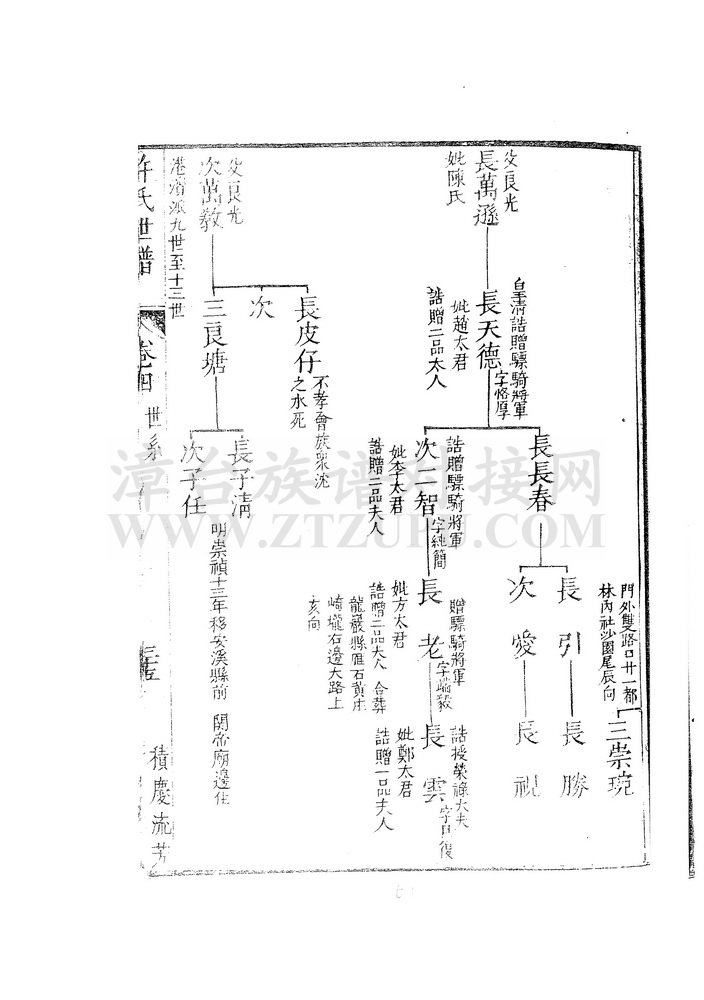 門外雙路口廿一都
林內社沙園尾辰向
三崇琬
父良光
長萬遜
妣陳氏
皇清誥贈驃騎將軍
長天德
字恪厚
妣趙太君
誥贈二品太人
長長春
長引
長勝
次愛
長視
誥贈驃騎將軍
次三智
字純簡
妣李太君
誥贈二品夫人
贈驃騎將軍
長老
字端毅
妣方太君
誥贈二品夫人 合葬
龍巖縣雁石黃庄
崎壠石邊大路上
亥向
誥授榮祿大夫
長雲
妣鄭太君
誥贈一品夫人
父良光
次萬教
長皮仔
不孝會族眾沈
之水死
次
三良塘
長子清
明崇禎十三年移安溪縣前 關帝廟邊住
次子任
港濱派九世至十三世
許氏世譜
卷四
世系
積慶流芳
漳台族谱对接网
WWW.ZTZUPU.COM